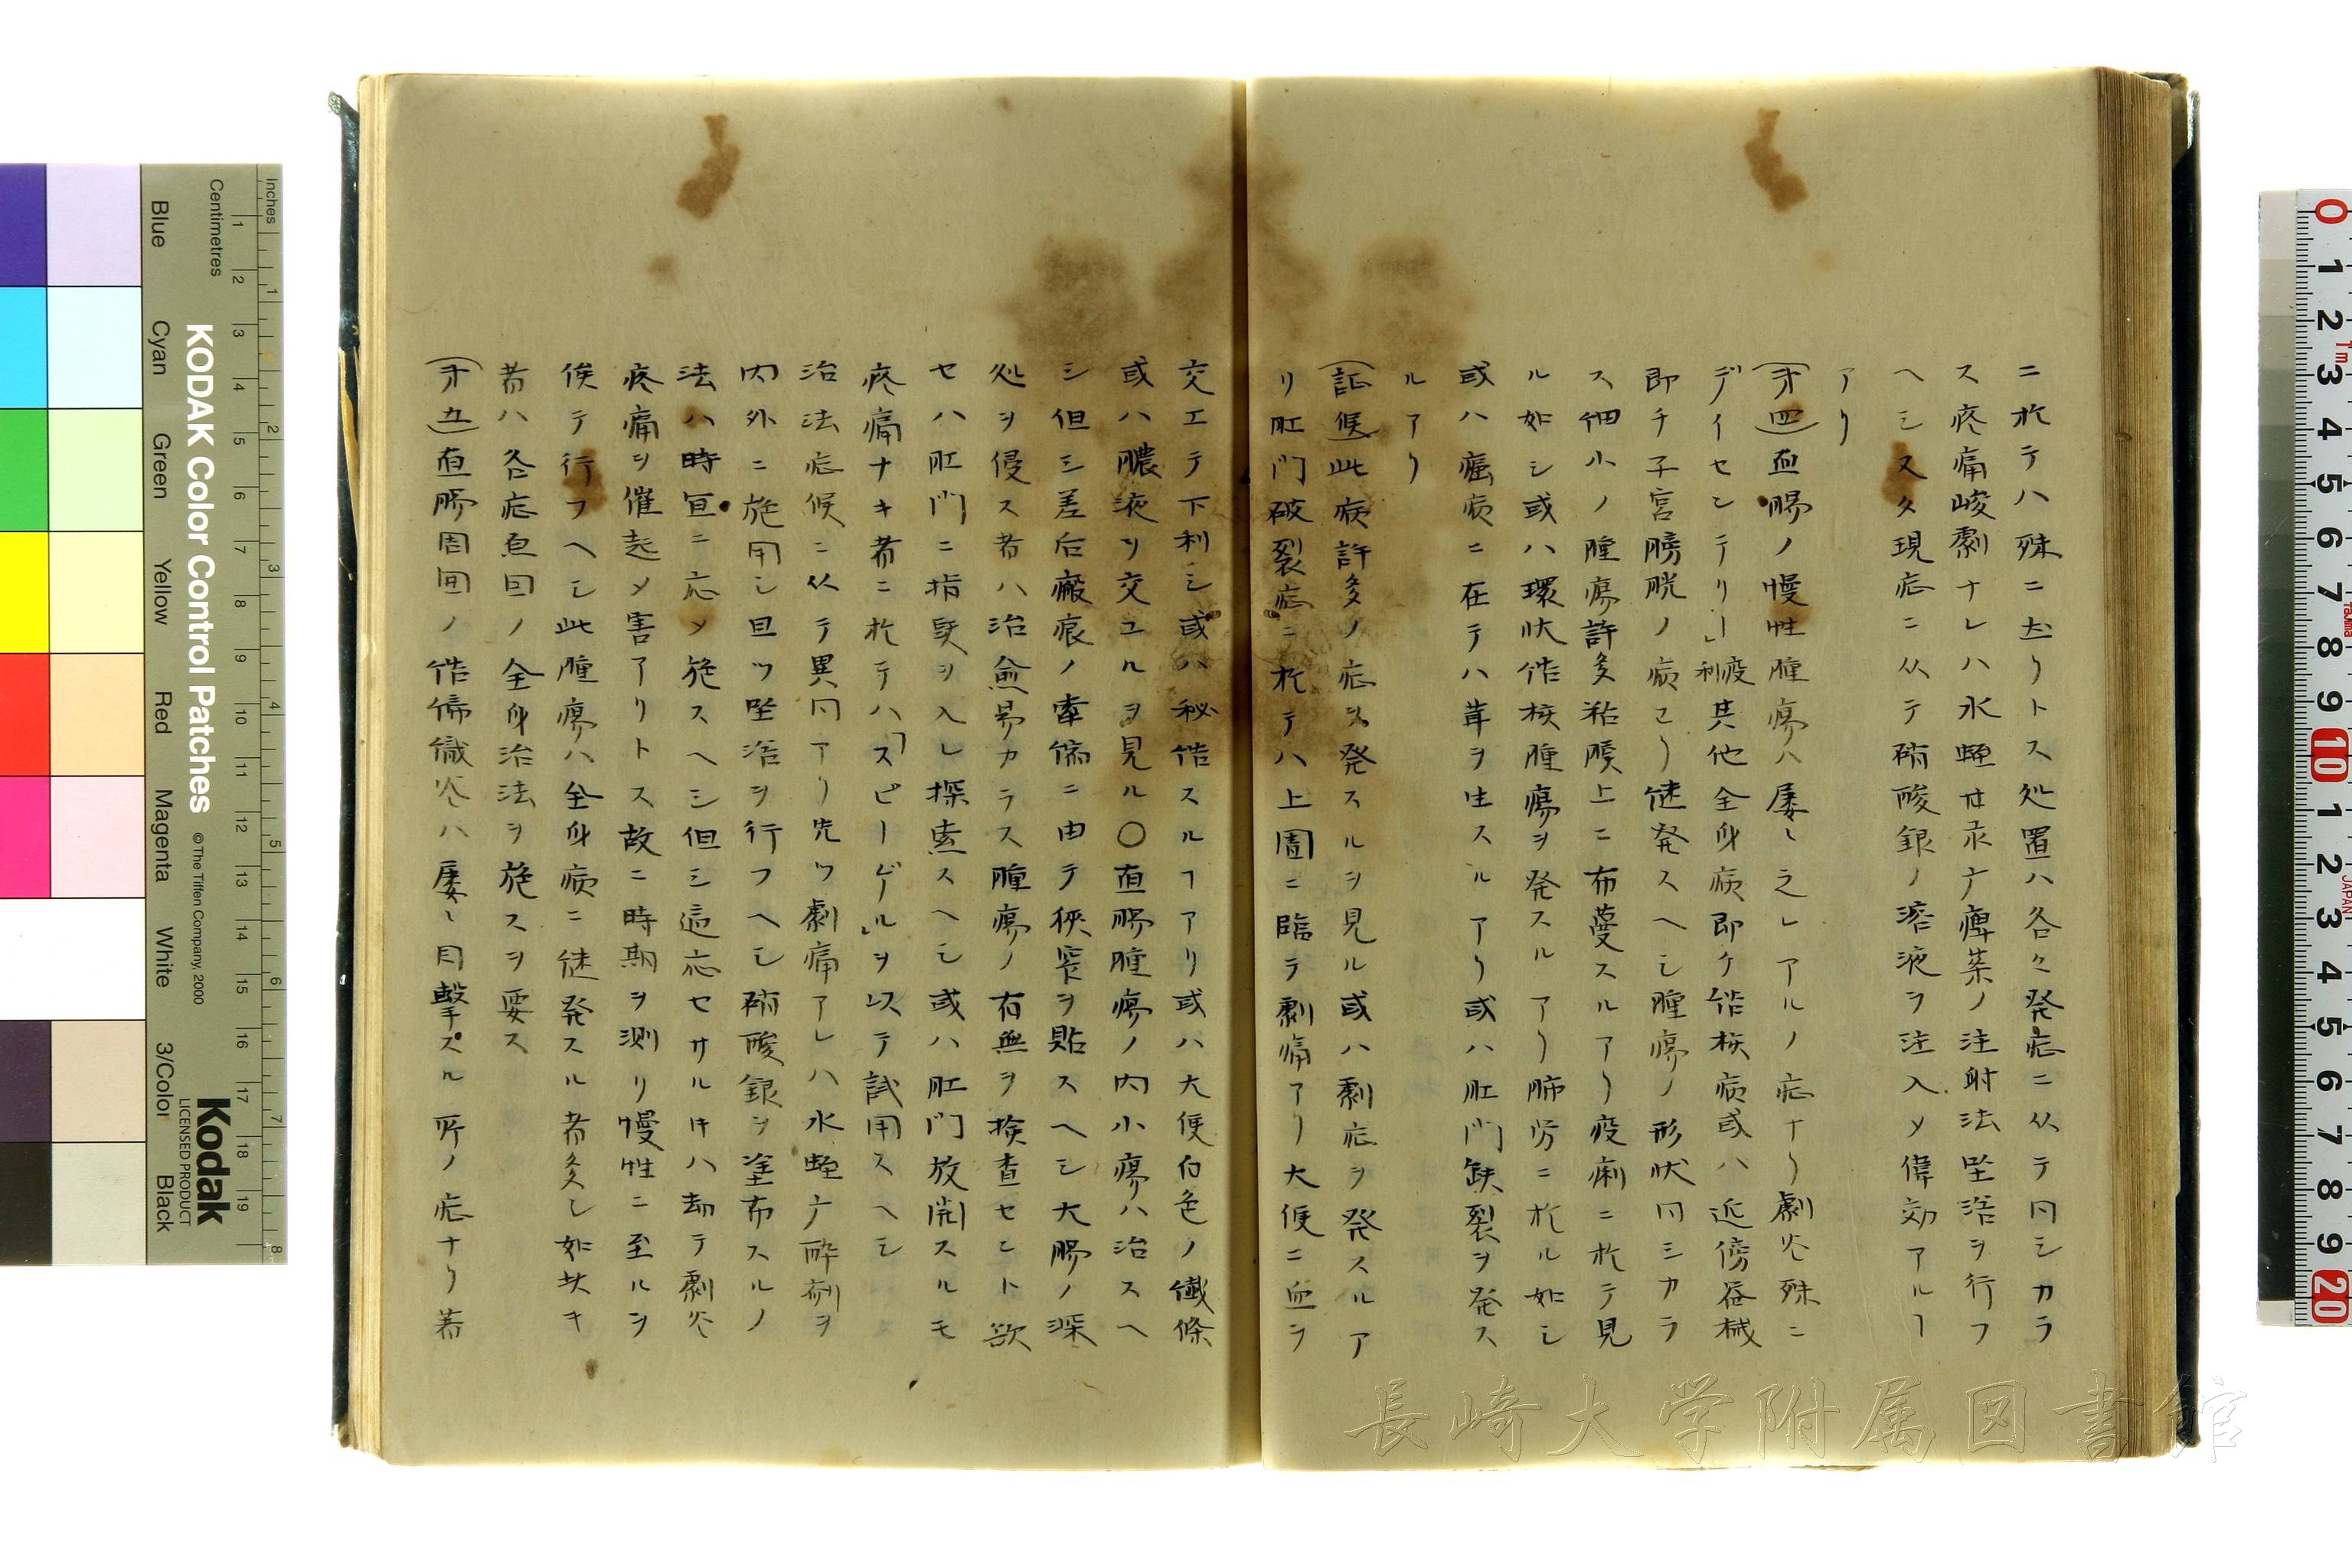 ニ於テハ殊ニ甚リトス処置ハ各々発症ニ从テ同シカラ
ス疼痛峻劇ナレハ水蛭甘汞ナ痺薬ノ注射法坐浴ヲ行フ
ヘシ又タ現症ニ从テ硝酸銀ノ溶液ヲ注入メ偉効アルヿ
アリ
(第四)直腸ノ慢性腫瘍ハ屡々之レアルノ症ナリ劇炎殊ニ
デイセンテリー」痢疫其他全身病即チ结核病或ハ近傍器械
即チ子宮膀胱ノ病ヨリ継発スヘシ腫瘍ノ形状同シカラ
ス细小ノ腫瘍許多粘膜上ニ布蔓スルアリ疫痢ニ於テ見
ル如シ或ハ環状结核腫瘍ヲ発スルアリ肺労ニ於ル如シ
或ハ癌病ニ在テハ茸ヲ生スルアリ或ハ肛門缺裂ヲ発ス
ルアリ
(証候)此病許多ノ症ヲ発スルヲ見ル或ハ劇症ヲ発スルア
リ肛門破裂症ニ於テハ上圊ニ臨テ劇痛アリ大便ニ血ヲ
交エテ下利シ或ハ秘结スルヿアリ或ハ大便白色ノ纎條
或ハ膿液ヲ交ユルヲ見ル〇直腸腫瘍ノ内小瘍ハ治スヘ
シ但シ差后瘢痕ノ牽縮ニ由テ狹窄ヲ貽スヘシ大腸ノ深
処ヲ侵ス者ハ治愈易カラス腫瘍ノ有無ヲ検査セント欲
セハ肛門ニ指頭ヲ入レ探索スヘシ或ハ肛門放開スルモ
疼痛ナキ者ニ於テハ「スピーゲル」ヲ以テ試用スヘシ
治法症候ニ从テ異同アリ先ツ劇痛アレハ水蛭ナ酔剤ヲ
内外ニ施用シ且ツ坐浴ヲ行フヘシ硝酸銀ヲ塗布スルノ
法ハ時宜ニ応メ施スヘシ但シ適応セサルキハ却テ劇炎
疼痛ヲ催起メ害アリトス故ニ時期ヲ測リ慢性ニ至ルヲ
俟テ行フヘシ此腫瘍ハ全身病ニ継発スル者多シ如此キ
者ハ各症真因ノ全身治法ヲ施スヲ要ス
(第五)直腸周囲ノ结締織炎ハ屡々目撃スル所ノ症ナリ若